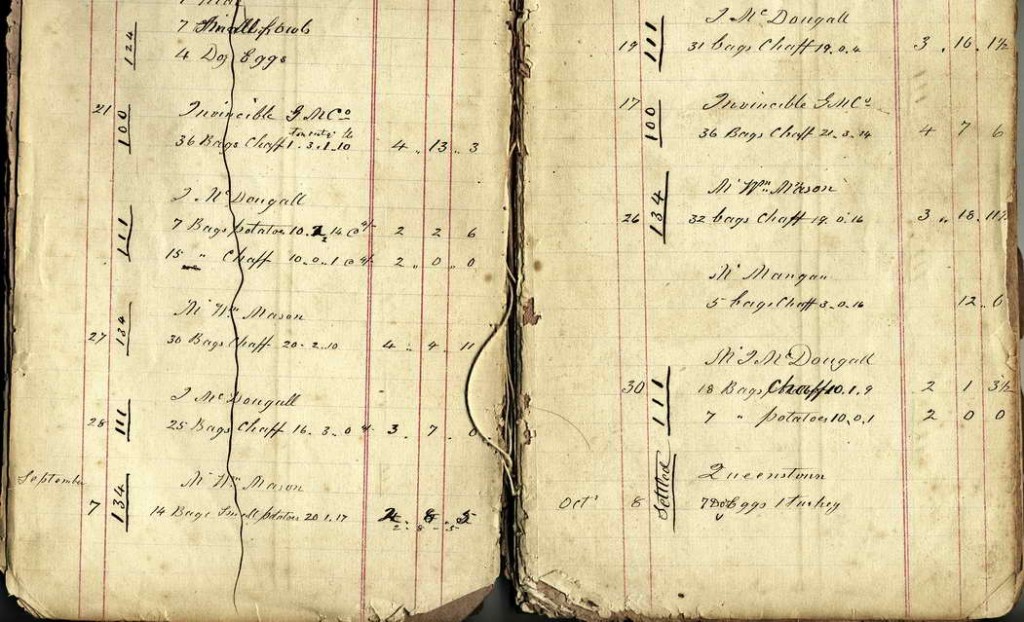 124
7 Small fowls
4 Doz Eggs
21 Invincible G M Co
100
36 Bags Chaff 1.3.1.10 4 " 13 " 3
J McDougall
111
7 Bags potatoes 10. 2 14 @ 4/- 2 2 6
15 " Chaff 10.0.1 @ 4/- 2 " 0 " 0
Mr Wm Mason
27 134
30 Bags Chaff 20.2.10 4 " 4 " 11
J McDougall
28 111
25 Bags Chaff 16.3.0 3 " 7 " 0
September
Mr Wm Mason
7 134
14 Bags Small potatoes 20 1.17 2 . 8 . 5
J McDougall
19 111
31 bags Chaff 19.0.4 3 . 16 . 1½
17 Invincible G M Co
100
36 Bags Chaff 21.3.14 4 7 6
Mr Wm Mason
26 134
32 bags Chaff 19.0.16 3 " 18 . 11½
Mr Mangan
5 bags Chaff 3.0.16 12 . 6
Mr J McDougall
30 111
18 Bags Chaff 10.1.9 2 1 3½
7 " potatoes 10.0.1 2 0 0
Settled
Queenstown
Oct 8 7 Doz Eggs 1 turkey